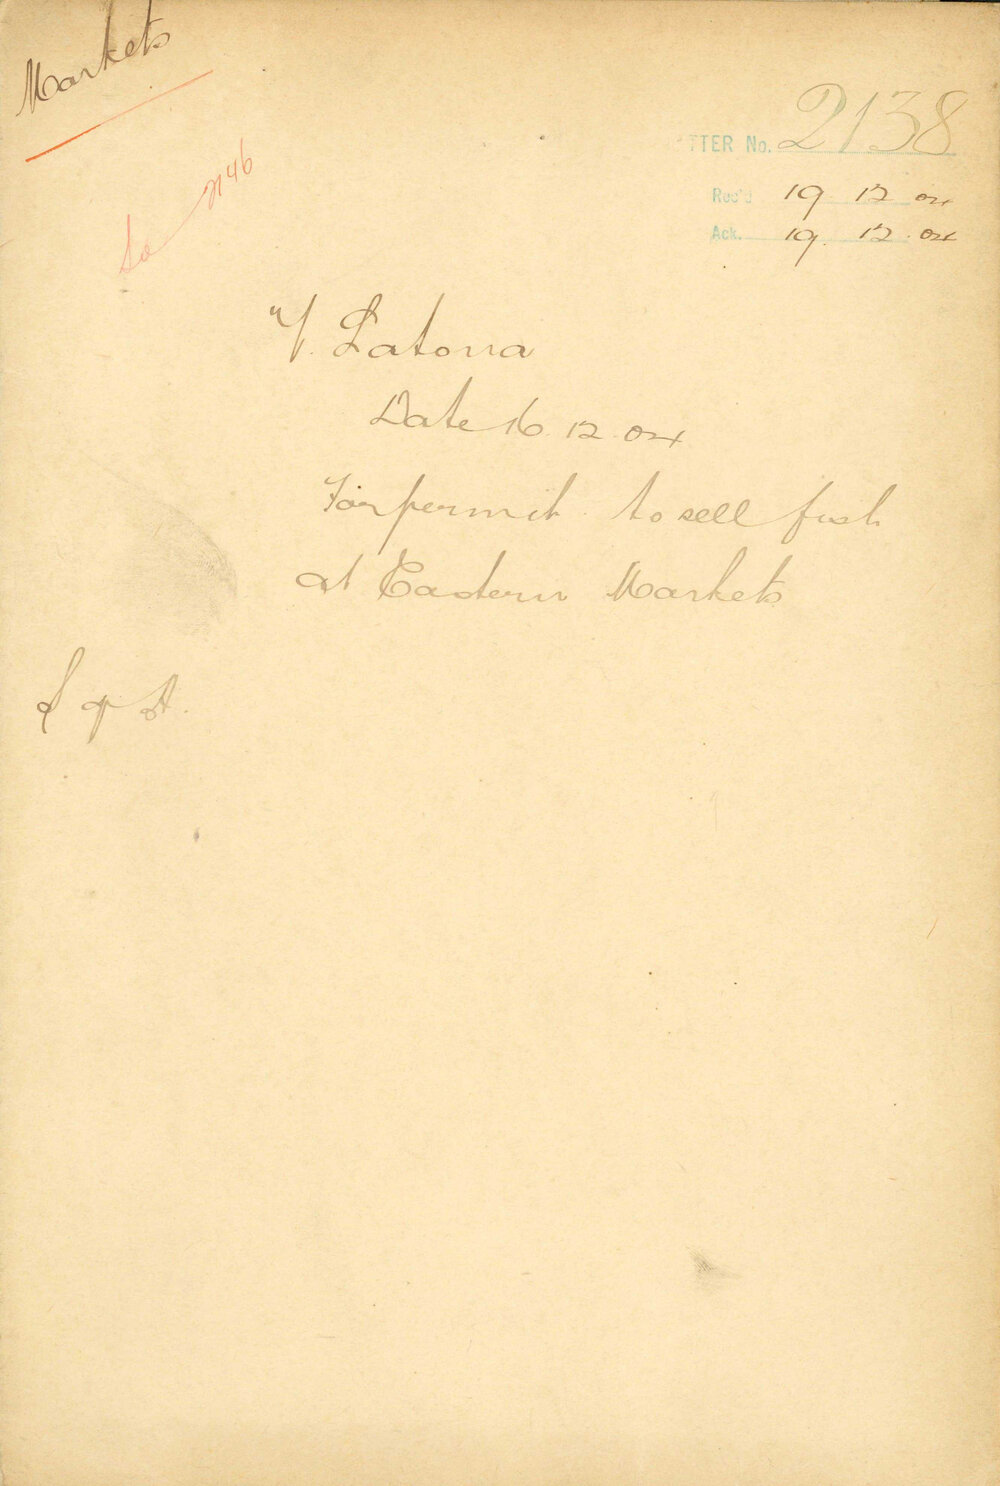 Markets
LETTER No. 2138
Rec'd 19 12 04
Ack. 19. 12. 04
to 2146
V. Latorra
Date 16. 12. 04
For permit to sell fish
at Eastern Markets